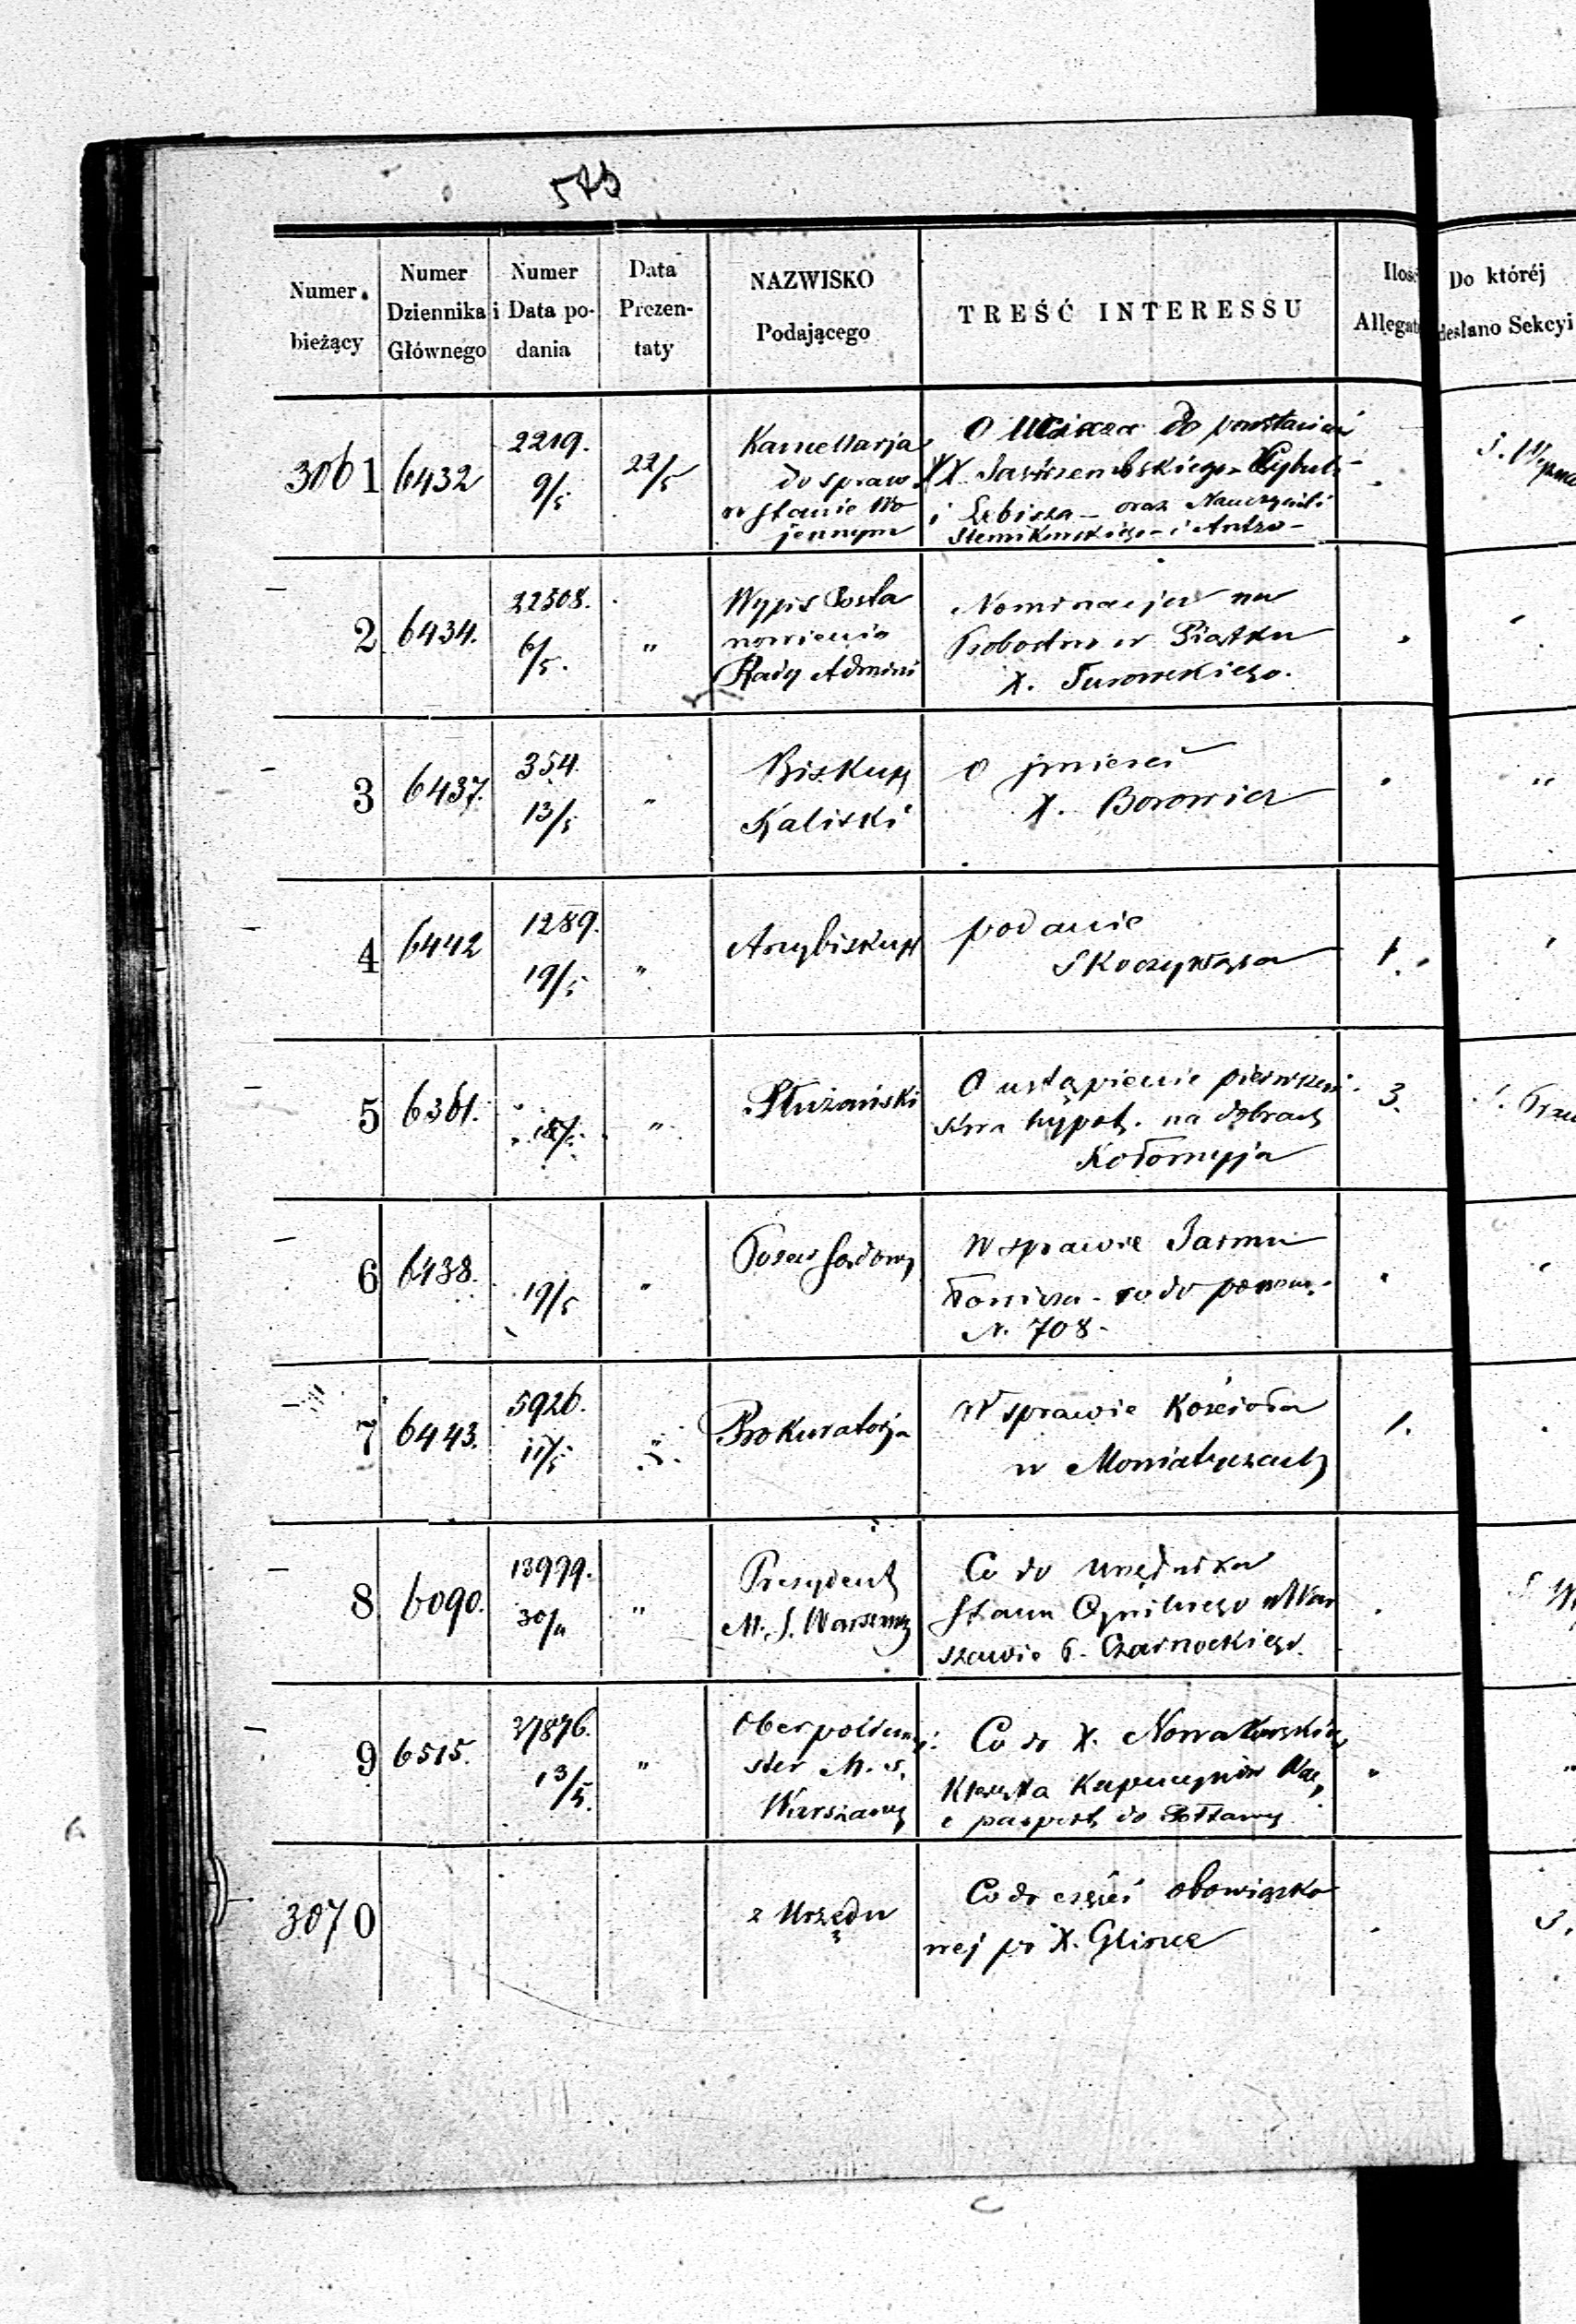 579
Numer bieżący | Numer Dziennika Głównego | Numer i Data podania | Data Prezentaty | NAZWISKO Podającego | TREŚĆ INTERESSU | Ilość Allegat | Do któréj desłano Sekcyi
3061 6432 2219. 9/5 22/5
Kancellarja
do spraw
w stanie Wo
jennym
O ucieczce do powstania
XX.
i oraz Nauczycieli
i
2 6434. 22308. 6/5. "
Wypis Posta
nowienia
Rady Admini
Nominacja na
Probostwo w Piątku
X. Turowskiego.
3 6437. 354. 13/5 "
Biskup
Kaliski
O śmierci
X. Borowicz
4 6442 1289. 19/5 "
Arcybiskup
podanie
1.
5 6361. 18/5 "
Płużański
O ustąpienie pierwszeń
stwa hypot. na dobrach
Kołomyja
3.
6 6438. 19/5 "
Pozew Sądowy
W sprawie
N. 708.
7 6443. 5926. 11/5 "
Prokuratorja
W sprawie Kościoła
w Moniatyczach
1.
8 6090. 13999. 30/4 "
Prezydent
M. S. Warszawy
Co do urzędnika
Stanu Cywilnego w War
szawie 6. Czarnockiego.
9 6515. 37876. 13/5. "
Oberpolicmaj
ster M. S.
Warszawy
Co do X. Nowakowskiego
Kleryka Kapucynów War,
o paszport do
3070
z Urzędu
Co do części obowiązko
wej po X. Glince